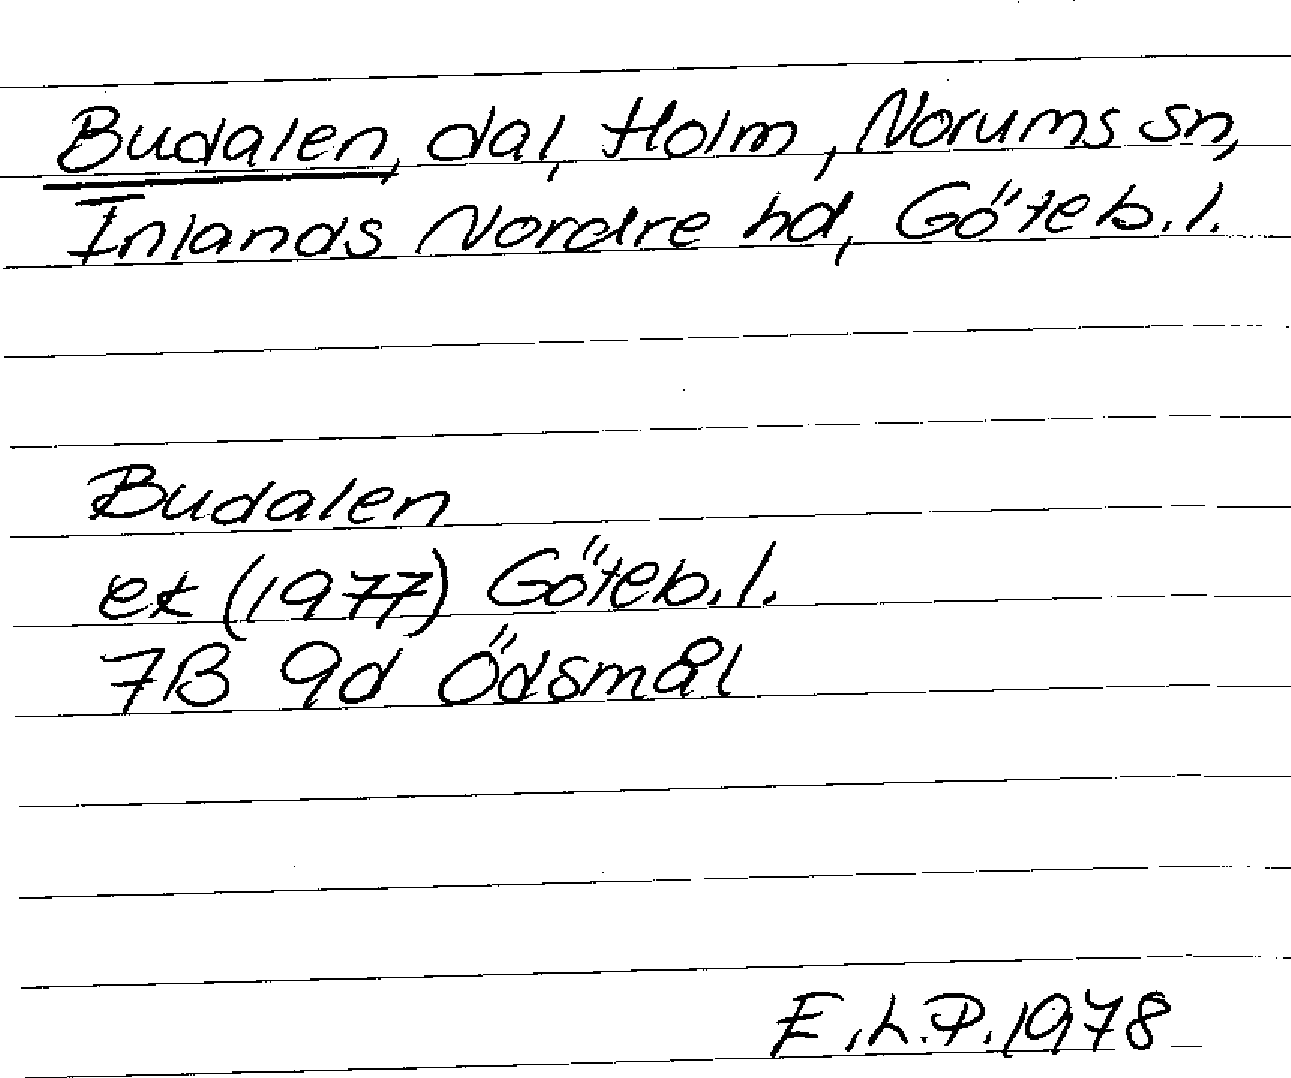 Budalen, dal, Holm, Norums sn,
Inlands Nordre hd, Göteb.l.
Budalen
ek (1977) Göteb.l.
7B 9d Ödsmål
E.L.P. 1978